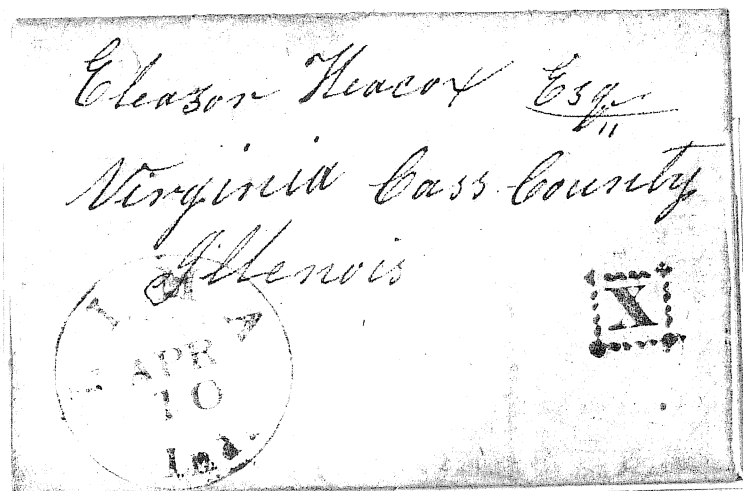 Eleazor Heacox Esqr
Virginia Cass County
Illenois
X
APR
10
Ia.